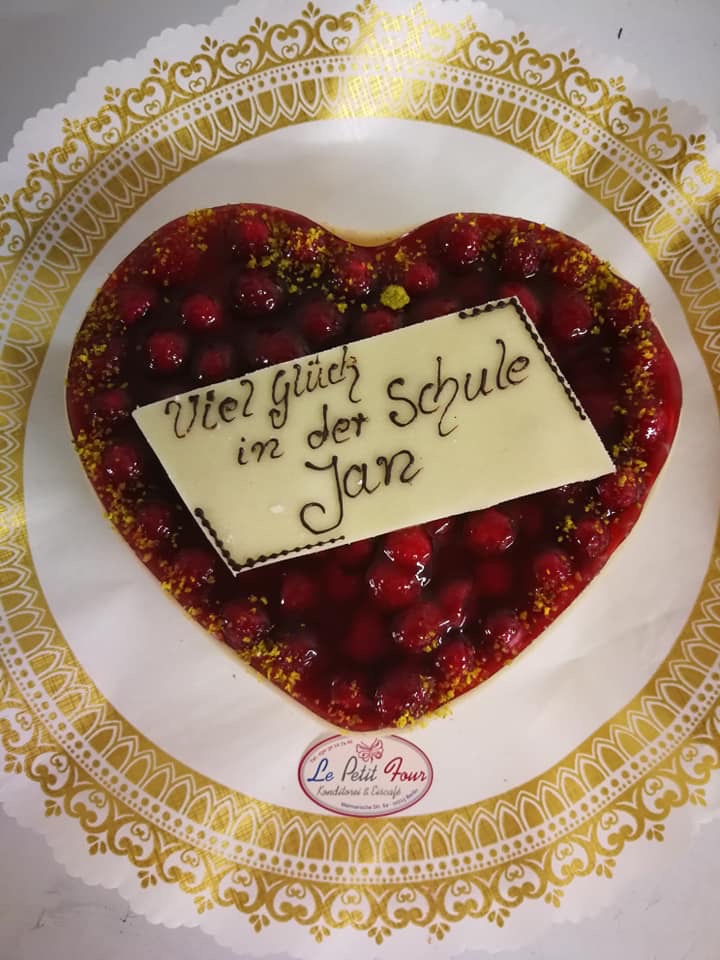 Viel Glück
in der Schule
Jan
Le Petit Four
Konditorei & Eiscafé